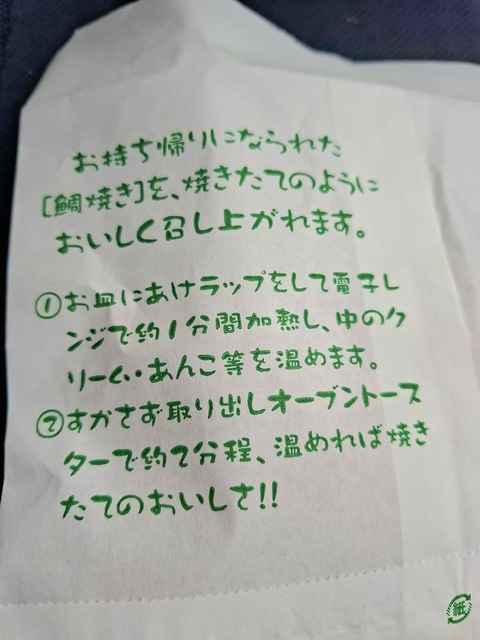 お持ち帰りになられた
[鯛焼き]を、焼きたてのように
おいしく召し上がれます。
①お皿にあけラップをして電子レ
ンジで約1分間加熱し、中のク
リーム・あんこ等を温めます。
②すかさず取り出しオーブントース
ターで約2分程、温めれば焼き
たてのおいしさ!!
紙